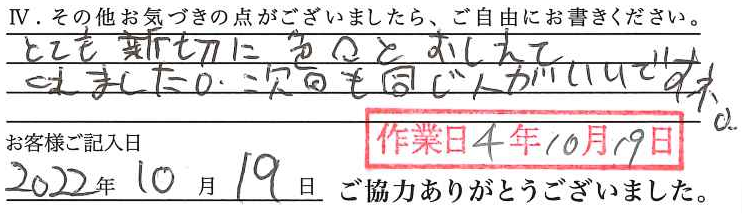 Ⅳ．その他お気づきの点がございましたら、ご自由にお書きください。
とても新切に色々とおしえて
くれました。次回も同じ人がいいですね。
お客様ご記入日
作業日4年10月19日
2022年10月19日 ご協力ありがとうございました。